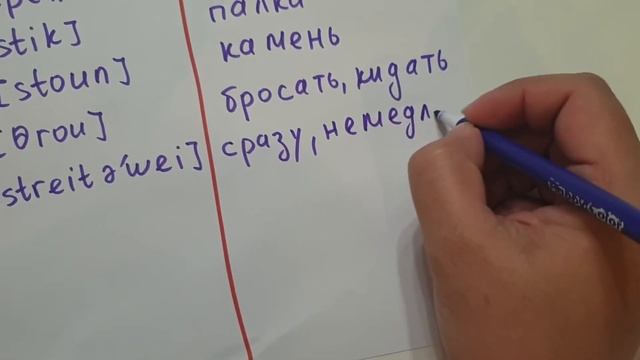 палка
stik] камень
[stoun] бросать, кидать
[θrou] сразу, немедл
streit ə'wei]